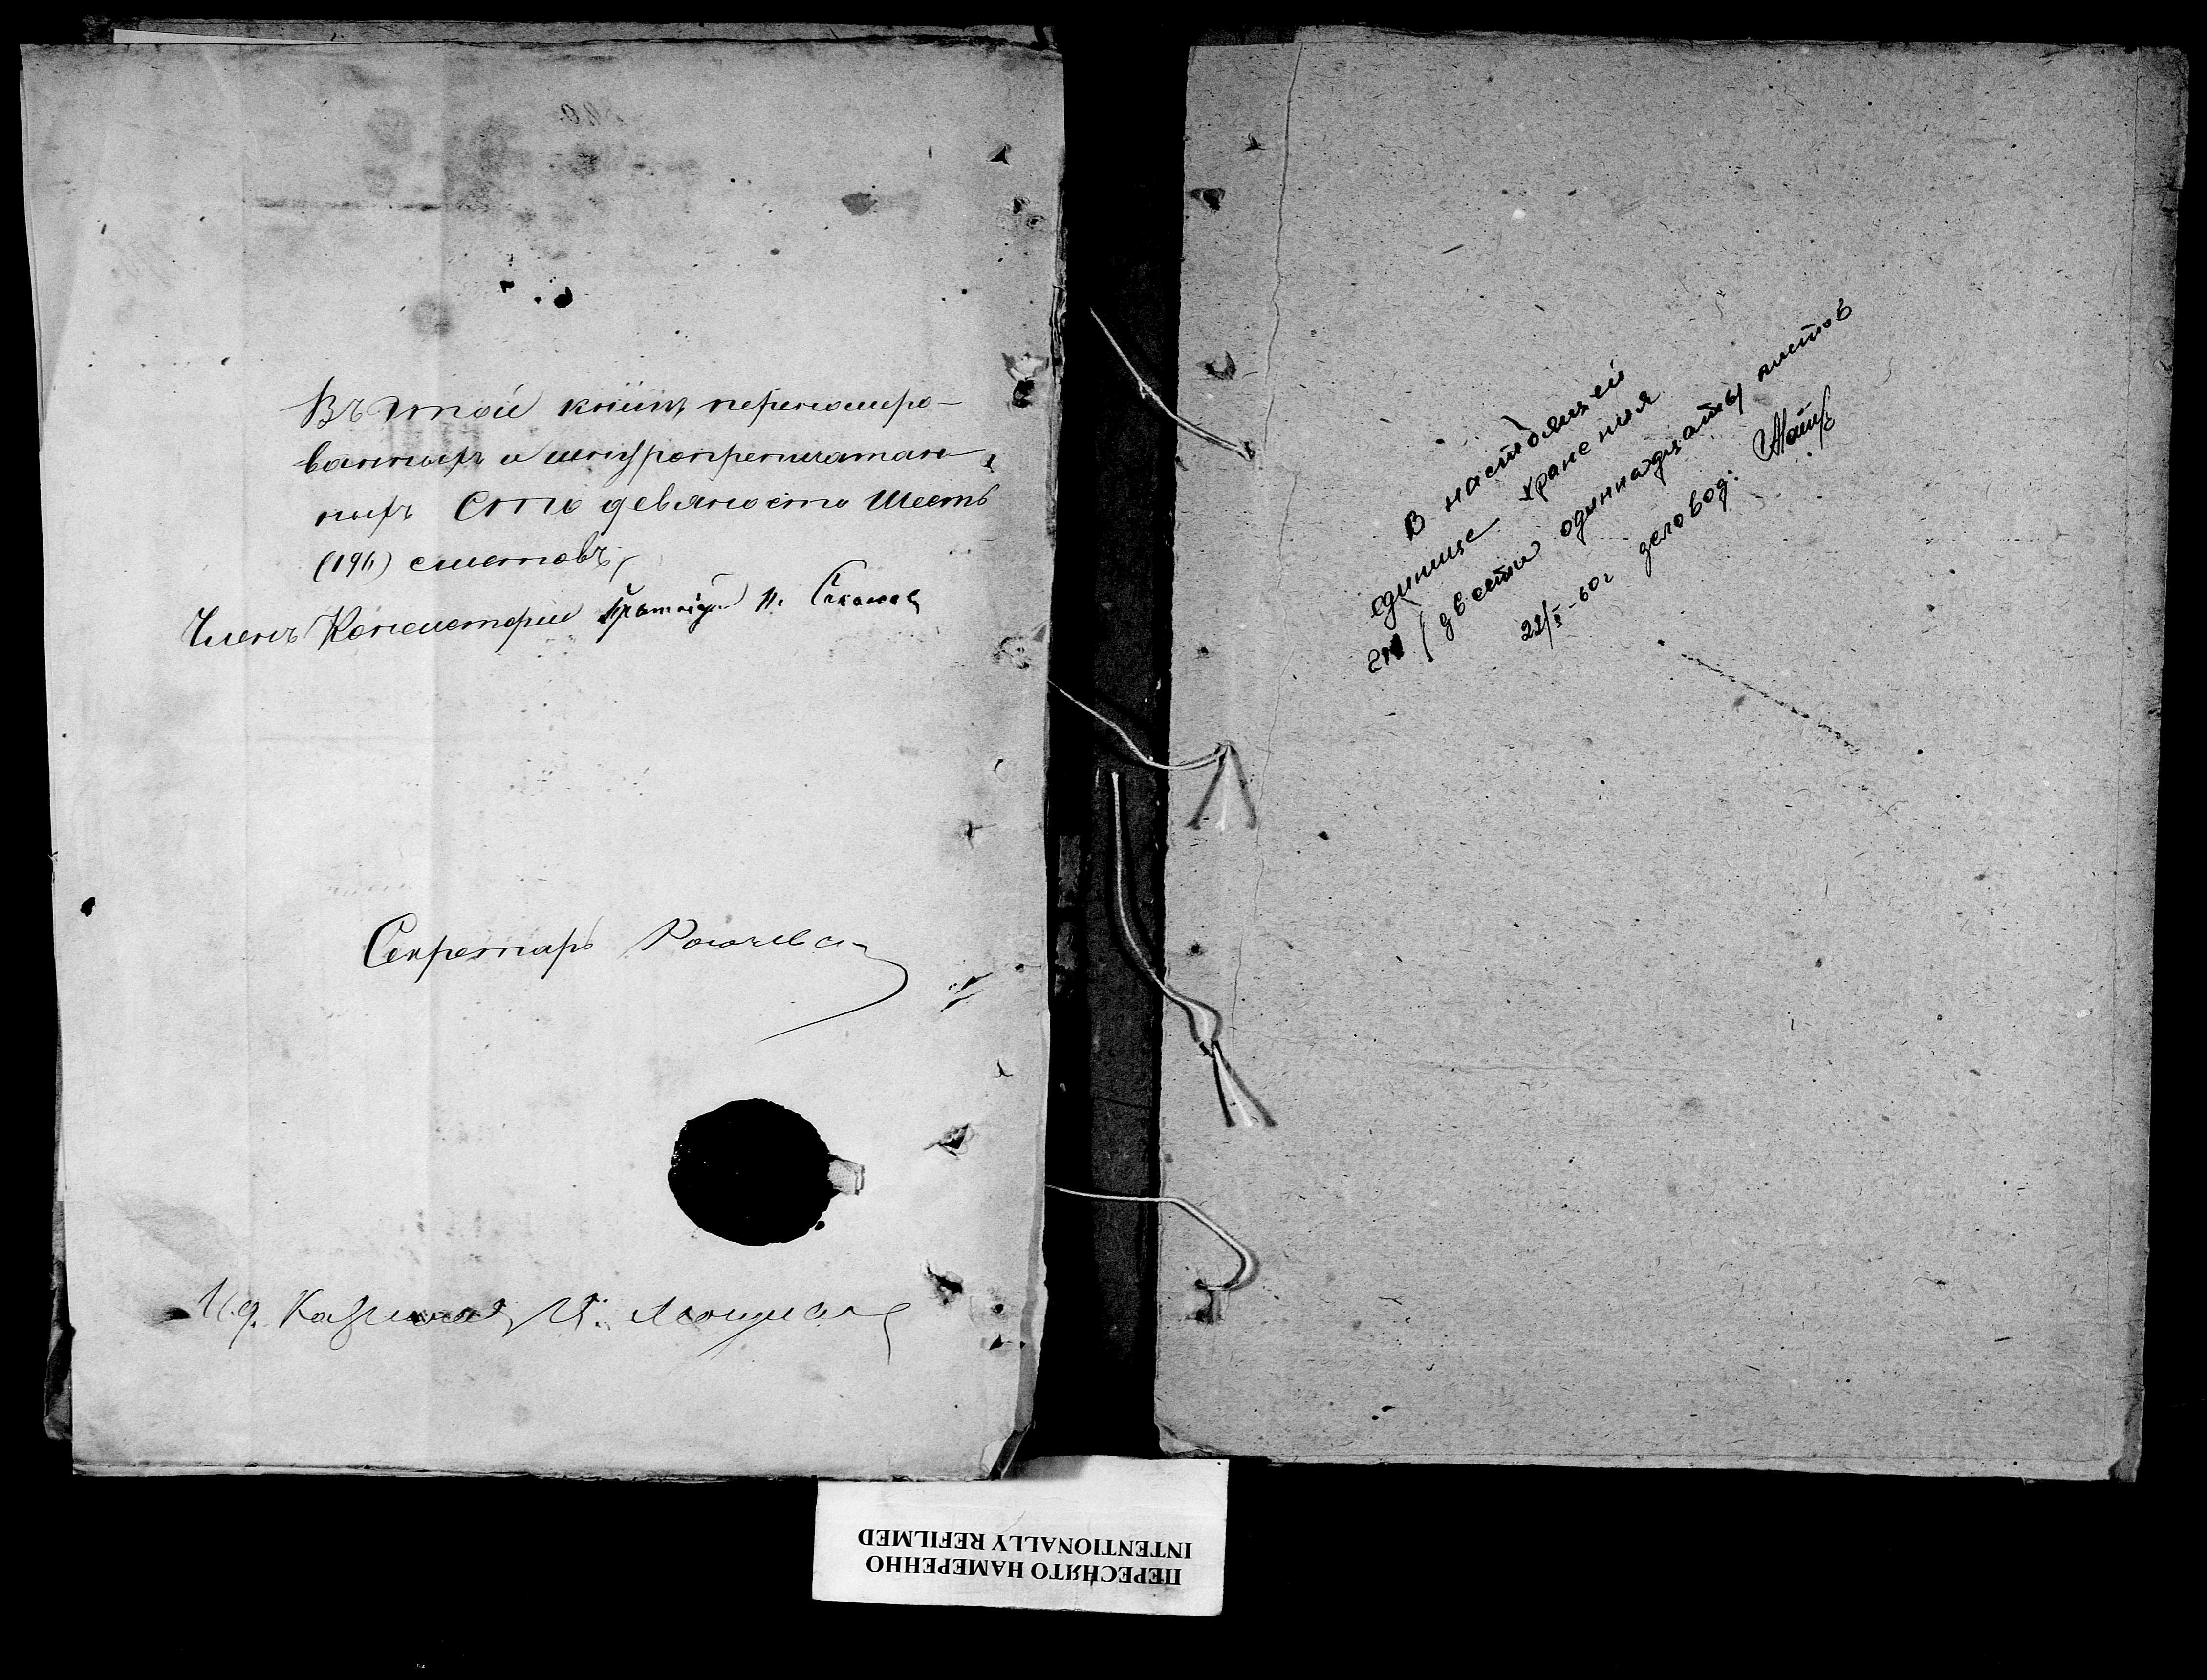 Въ этой книгѣ перенумеро-
ванныхъ и шнуропропечатан-
ныхъ Сто девяносто Шесть
(196) листовъ,
Членъ Консисторіи Протоіерей П.
Секретарь
И. д. Казначея
В настоящей
единице хранения
211 (двести одиннадцать) листов
22/X-60г деловод.
ПЕРЕСНЯТО НАМЕРЕННО
INTENTIONALLY REFILMED